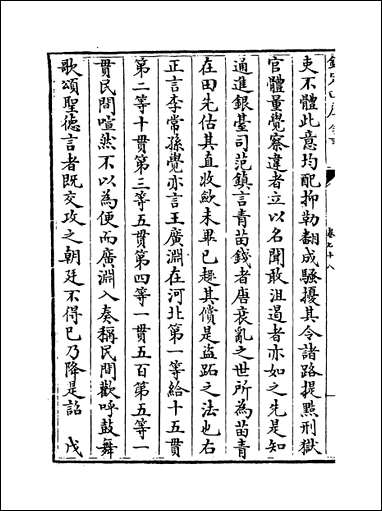 卷九十八
吏不體此意均配抑勒翻成騷擾其令諸路提㸃刑獄
官體量覺察違者立以名聞敢沮遏者亦如之先是知
通進銀臺司范鎮言青苗錢者唐衰亂之世所為苗青
在田先估其直收歛未畢已趣其償是盗跖之法也右
正言李常孫覺亦言王廣淵在河北第一等給十五貫
第二等十貫第三等五貫第四等一貫五百第五等一
貫民間喧然不以為便而廣淵入奏稱民間歡呼鼓舞
歌頌聖德言者既交攻之朝廷不得已乃降是詔　戊